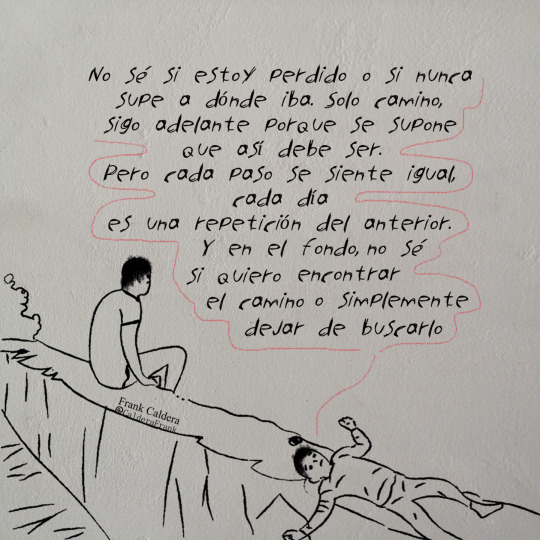 No sé si estoy perdido o si nunca
supe a dónde iba. Solo camino,
sigo adelante porque se supone
que así debe ser.
Pero cada paso se siente igual,
cada día
es una repetición del anterior.
Y en el fondo, no sé
si quiero encontrar
el camino o simplemente
dejar de buscarlo
Frank Caldera
@CalderaFrank_